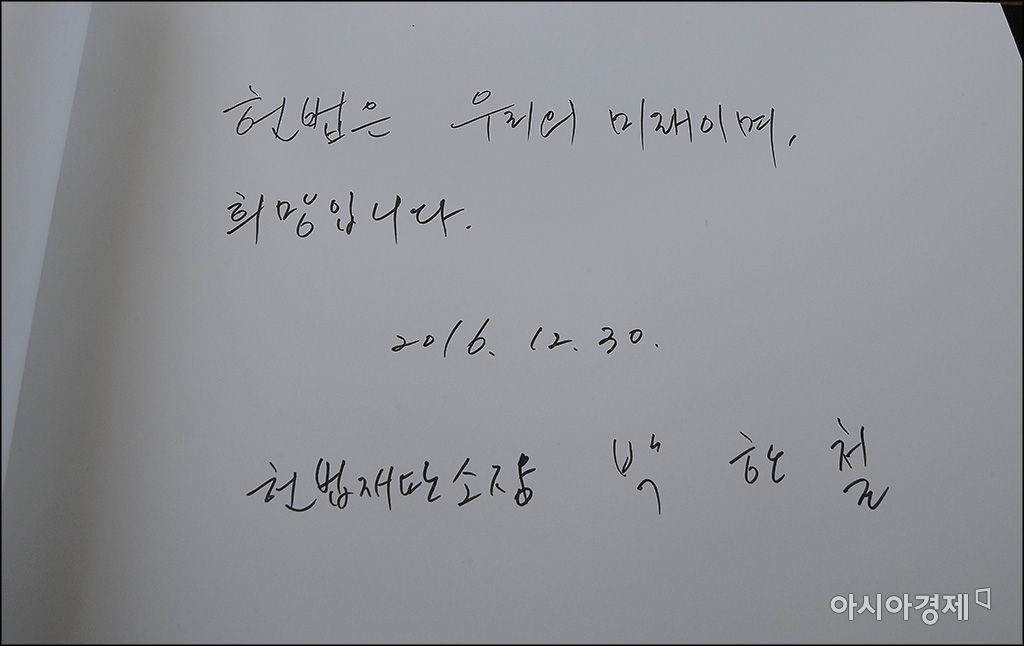 헌법은 우리의 미래이며,
희망입니다.
2016. 12. 30.
헌법재판소장 박 한 철
아시아경제